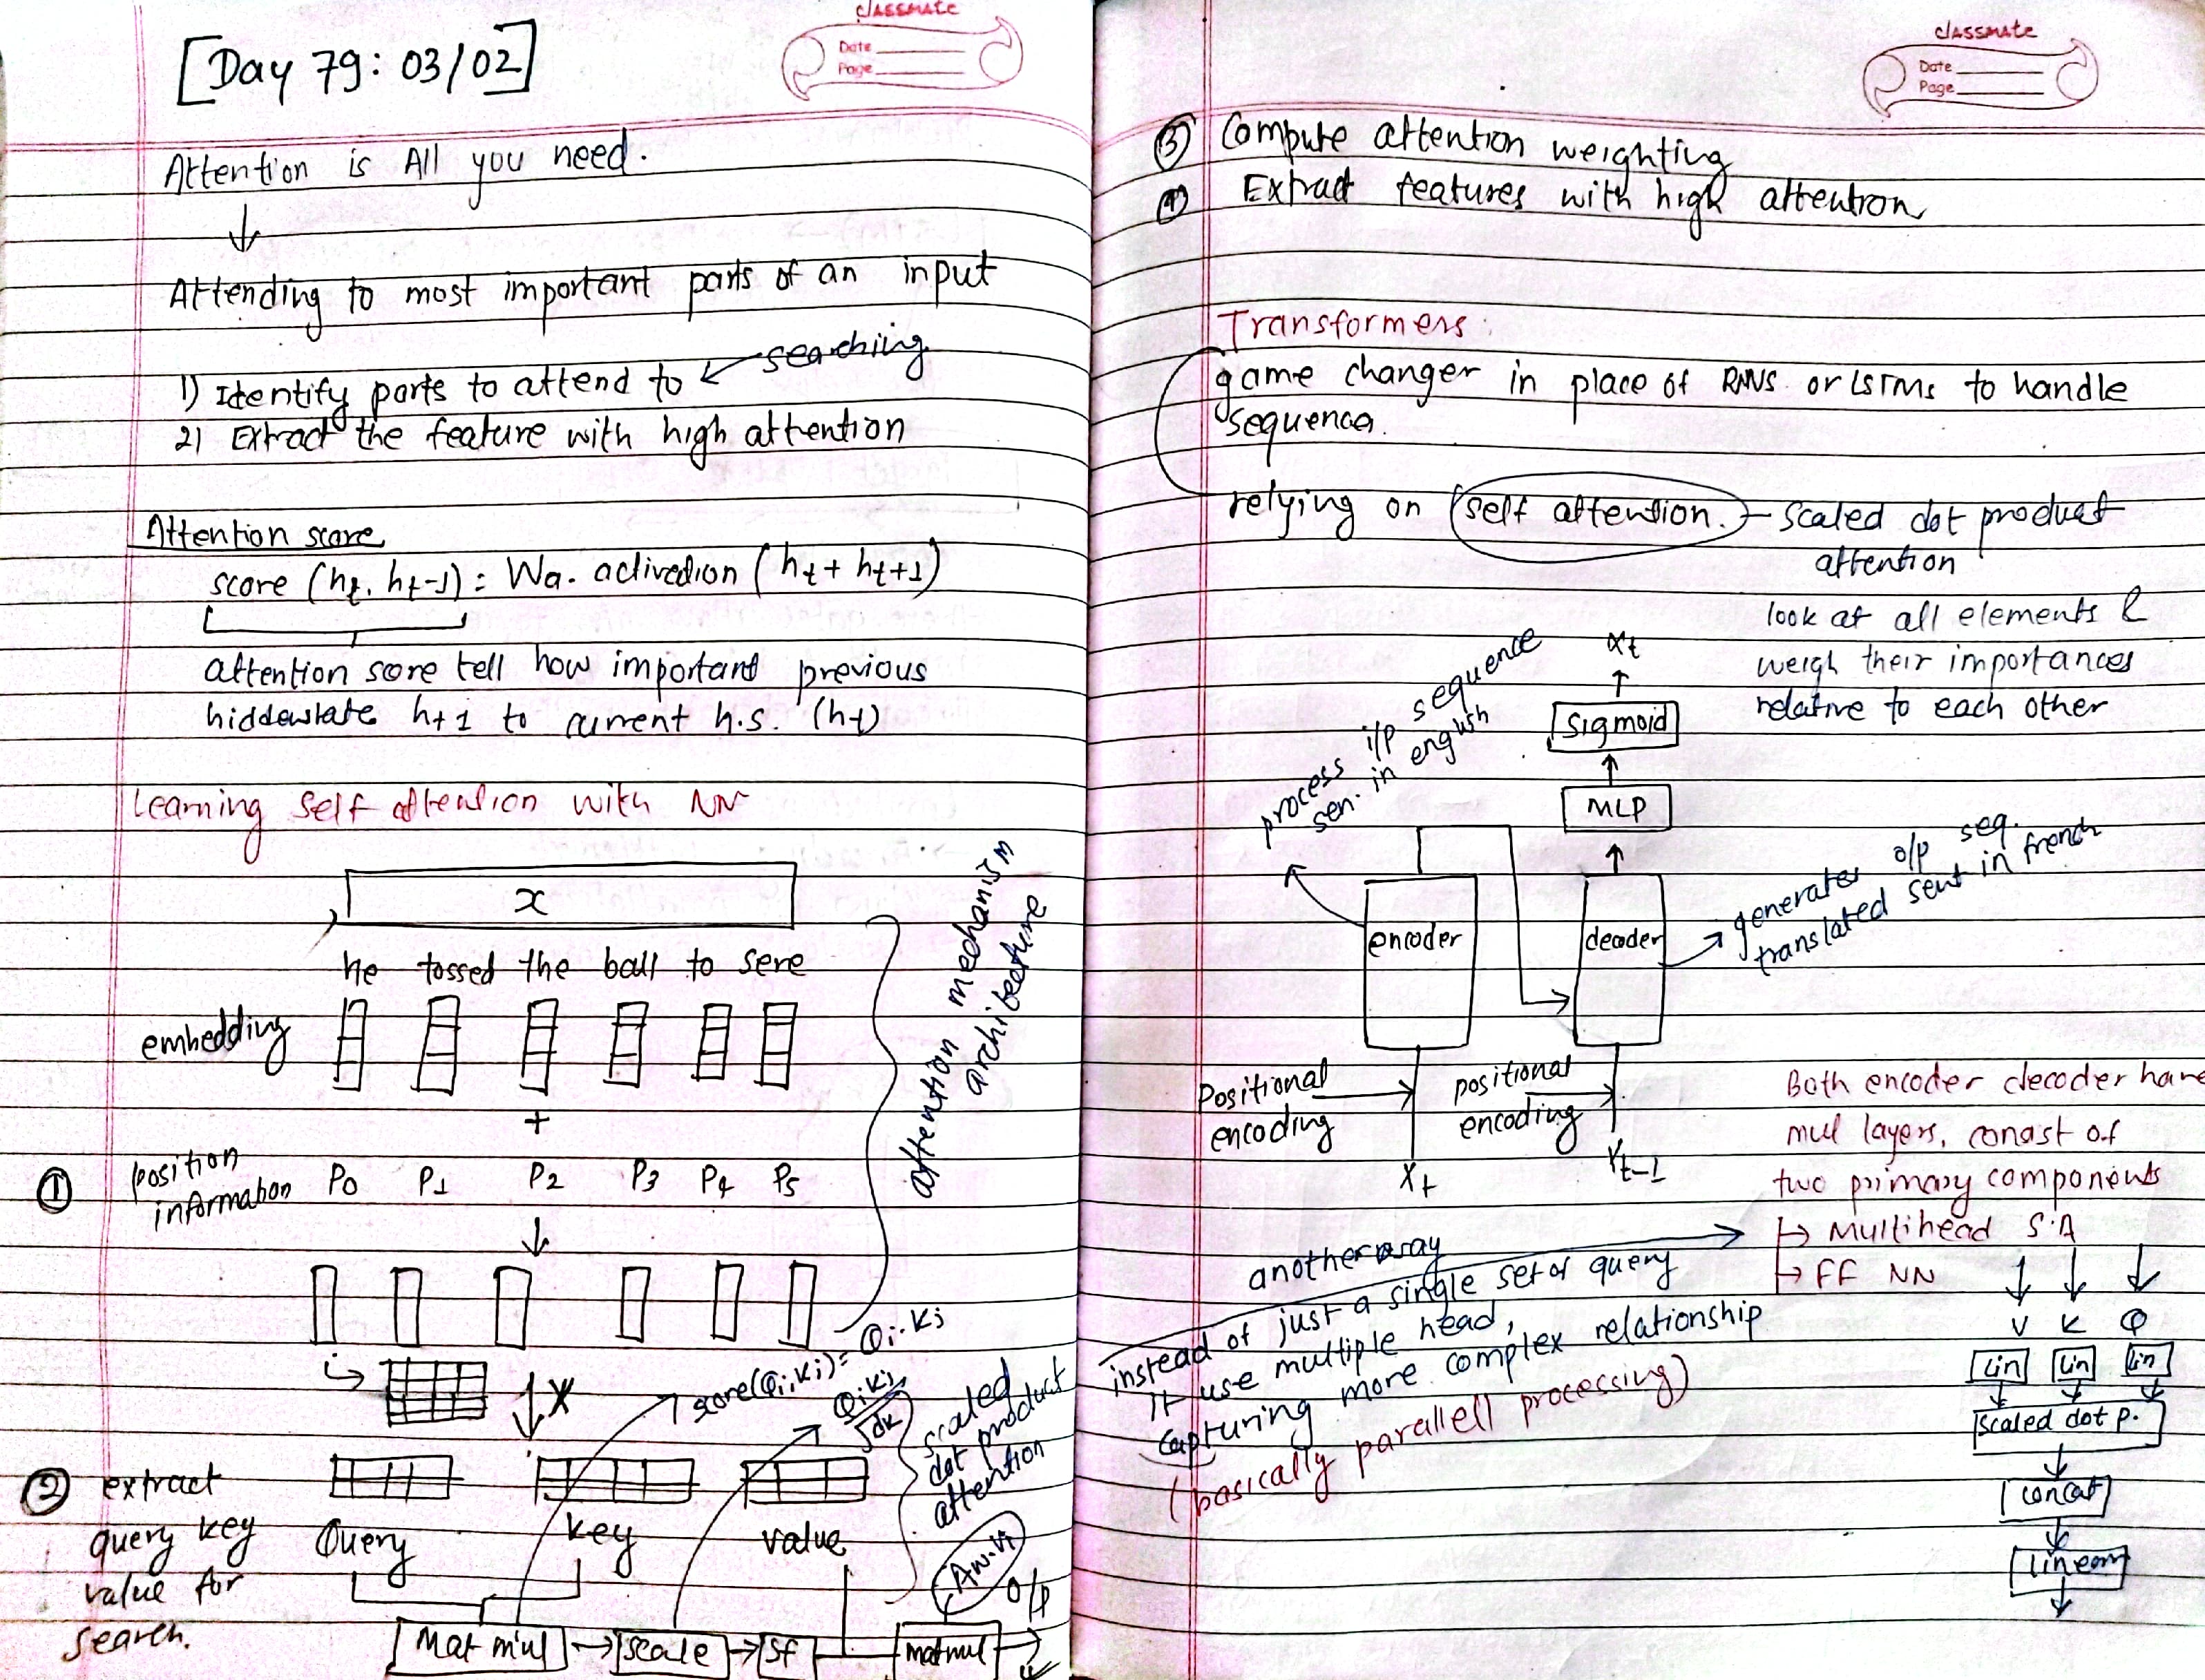 classmate
Date
Page
[Day 79: 03/02]
Attention is All you need.
Attending to most important parts of an input
1) Identify parts to attend to ← searching
2) Extract the feature with high attention
Attention score
score (ht, ht-1) = Wa. activation (ht + ht+1)
attention score tell how important previous
hiddenstate ht1 to current h.s. (ht)
Learning self attention with NN
x
he tossed the ball to sere
embedding
+
① position
information
P0 P1 P2 P3 P4 P5
attention mechanism
architecture
X
score(Qi, Ki) = Qi.Kj
Qi Kj
√dk
scaled
dot product
attention
② extract
query key
value for
search.
Query key value
Aw.Vi
O/P
Mat mul → scale → Sf matmul
classmate
Date
Page
③ Compute attention weighting
④ Extract features with high attention
Transformers:
game changer in place of RNNS or LSTMs to handle
sequence.
relying on self attention. - scaled dot product
attention
look at all elements &
weigh their importances
relative to each other
process i/p sequence
sen. in english
αt
sigmoid
MLP
encoder
decoder
generates o/p seq.
translated sent in french
Positional
encoding
positional
encoding
Xt
Yt-1
Both encoder decoder have
mul layers, consist of
two primary components
→ Multihead S.A
→ FF NN
another way
instead of just a single set of query
It use multiple head,
capturing more complex relationship
(basically parallell processing)
V K Q
Lin Lin Lin
Scaled dot p.
concat
Linear